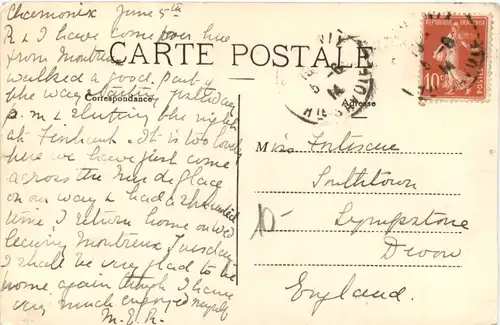 Chamonix June 5th
R & I have come over here
from Montreux
CARTE POSTALE
walked a good part of
the way starting yesterday
Correspondance
Adresse
p.m. & spending the night
at Finhaut. It is too lovely
here we have just come
across the Mer de glace
on our way & had a splendid
time. I return home on Wed
leaving Montreux Tuesday
I shall be very glad to be
home again though I have
very much enjoyed myself
M.E.R.
Miss Fortescue
Southtown
Lympstone
Devon
England.
10-
RÉPUBLIQUE FRANÇAISE
10c
5-6
14
HTE SAVOIE